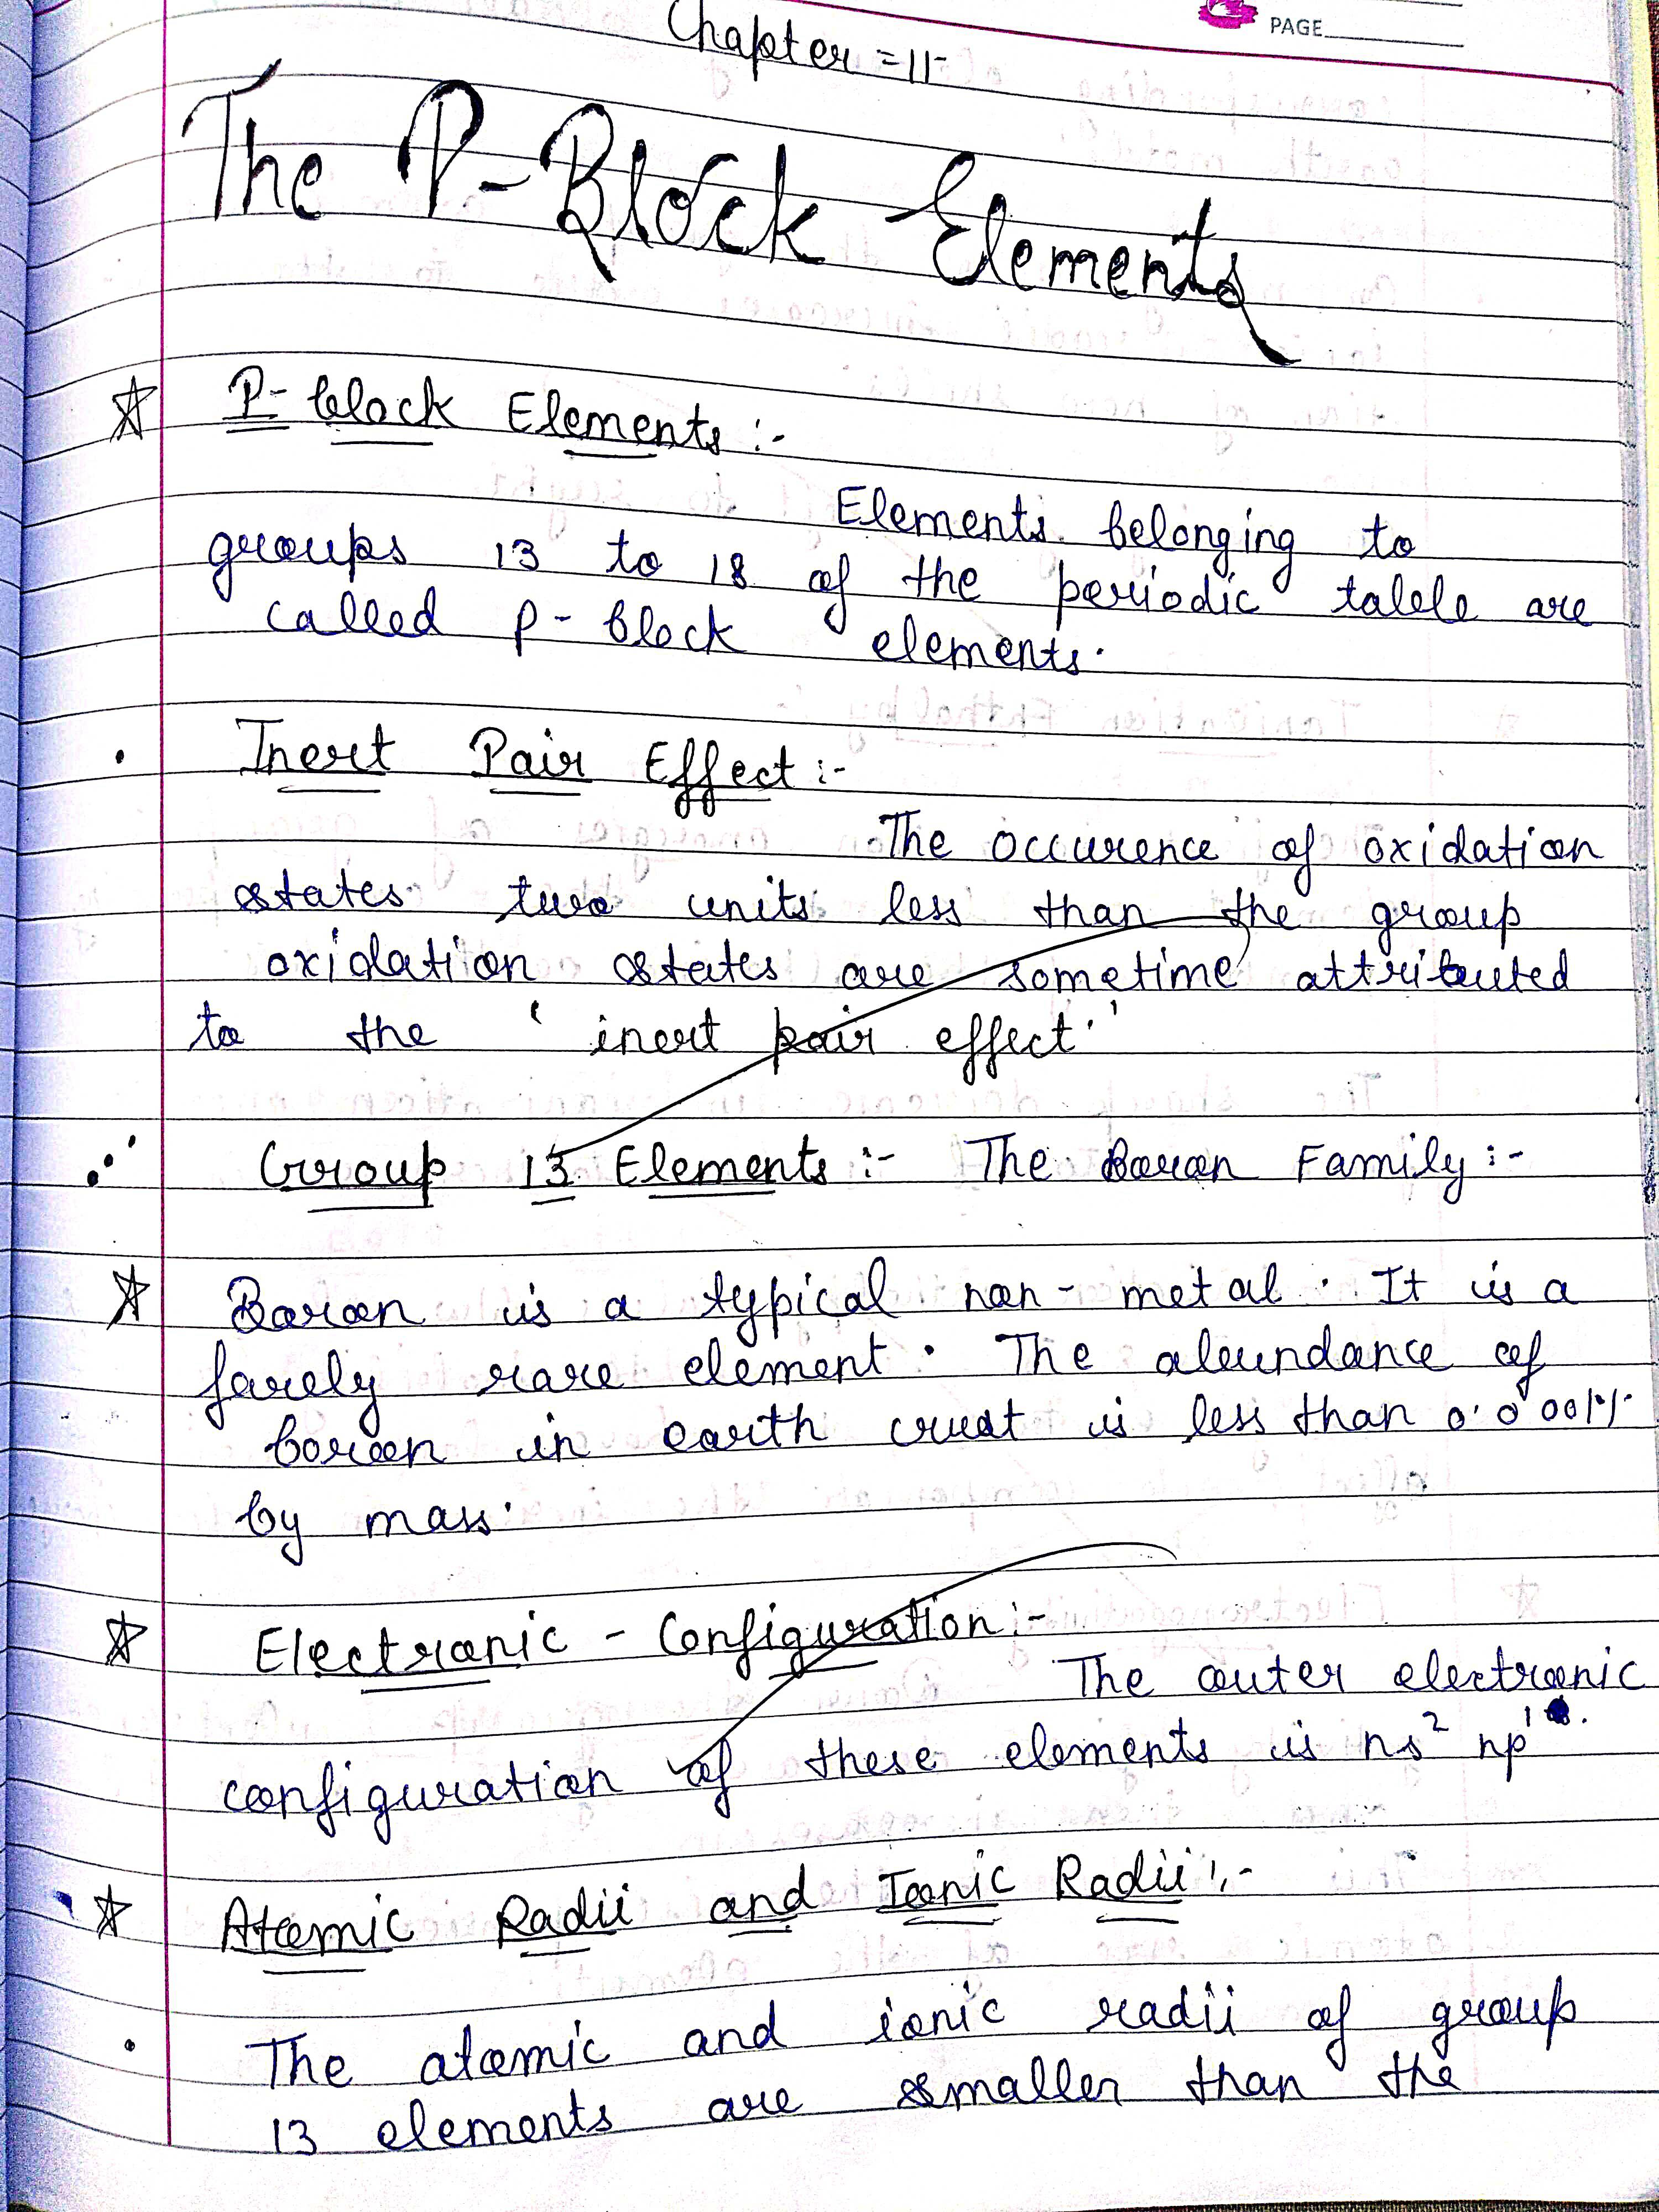 PAGE
Chapter = 11
The P-Block Elements
P-block Elements :-
Elements belonging to
groups 13 to 18 of the periodic table are
called p-block elements.
Inert Pair Effect :-
The occurence of oxidation
states two units less than the group
oxidation states are sometime attributed
to the 'inert pair effect.'
Group 13 Elements :- The Boron Family :-
Boron is a typical non-metal. It is a
farely rare element. The abundance of
boron in earth crust is less than 0.0001%
by mass.
Electronic - Configuration :-
The outer electronic
configuration of these elements is ns² np¹.
Atomic Radii and Ionic Radii :-
The atomic and ionic radii of group
13 elements are smaller than the